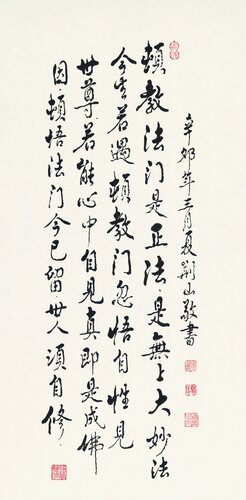 頓教法门是正法是無上大妙法
今生若遇頓教門忽悟自性見
世尊若能心中自見真即是成佛
因頓悟法门今已留世人須自修
辛卯年三月夏荆山敬書